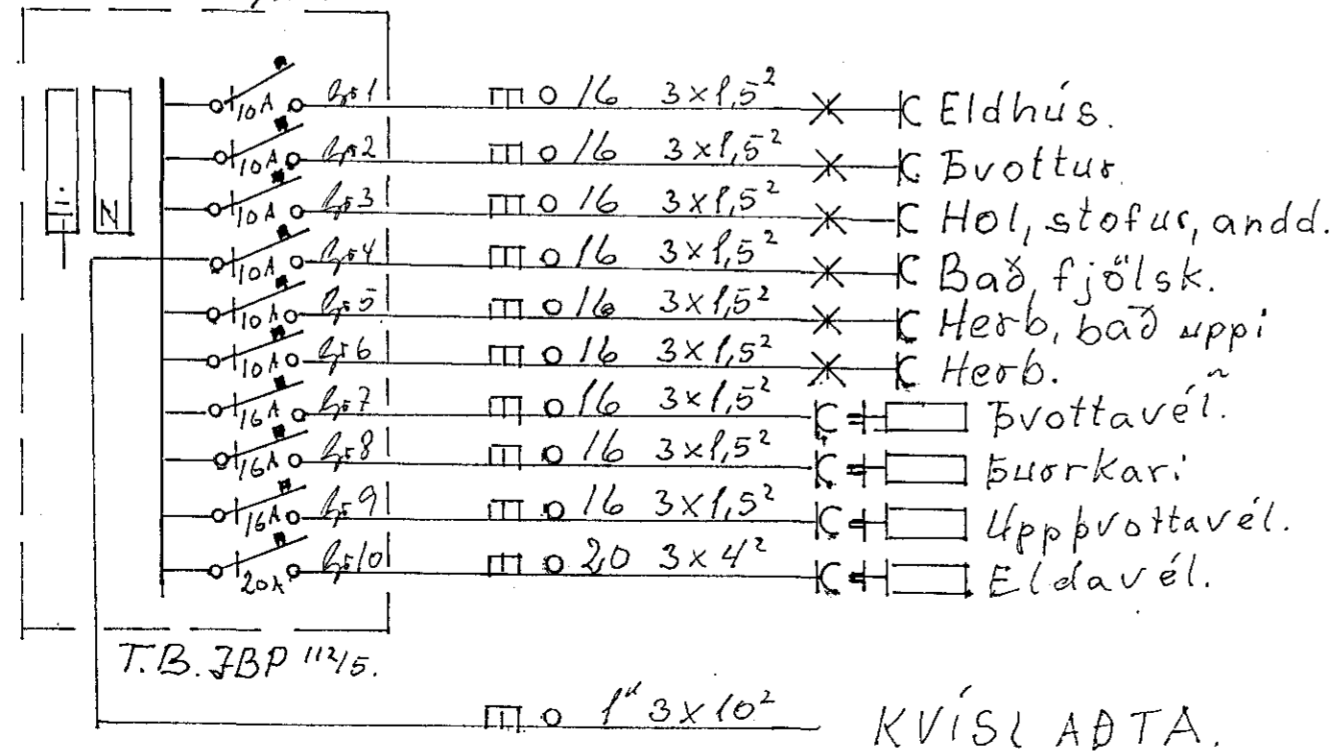 10A gr 1 16 3x1,5² Eldhús.
10A gr 2 16 3x1,5² Þvottur
10A gr 3 16 3x1,5² Hol, stofur, andd.
10A gr 4 16 3x1,5² Bað, fjölsk.
10A gr 5 16 3x1,5² Herb, bað uppi
10A gr 6 16 3x1,5² Herb.
16A gr 7 16 3x1,5² Þvottavél.
16A gr 8 16 3x1,5² Þurrkari
16A gr 9 16 3x1,5² Uppþvottavél.
20A gr 10 20 3x4² Eldavél.
N
T.B. JBP 112/5.
1" 3x10² KVÍSL AÐ TA.